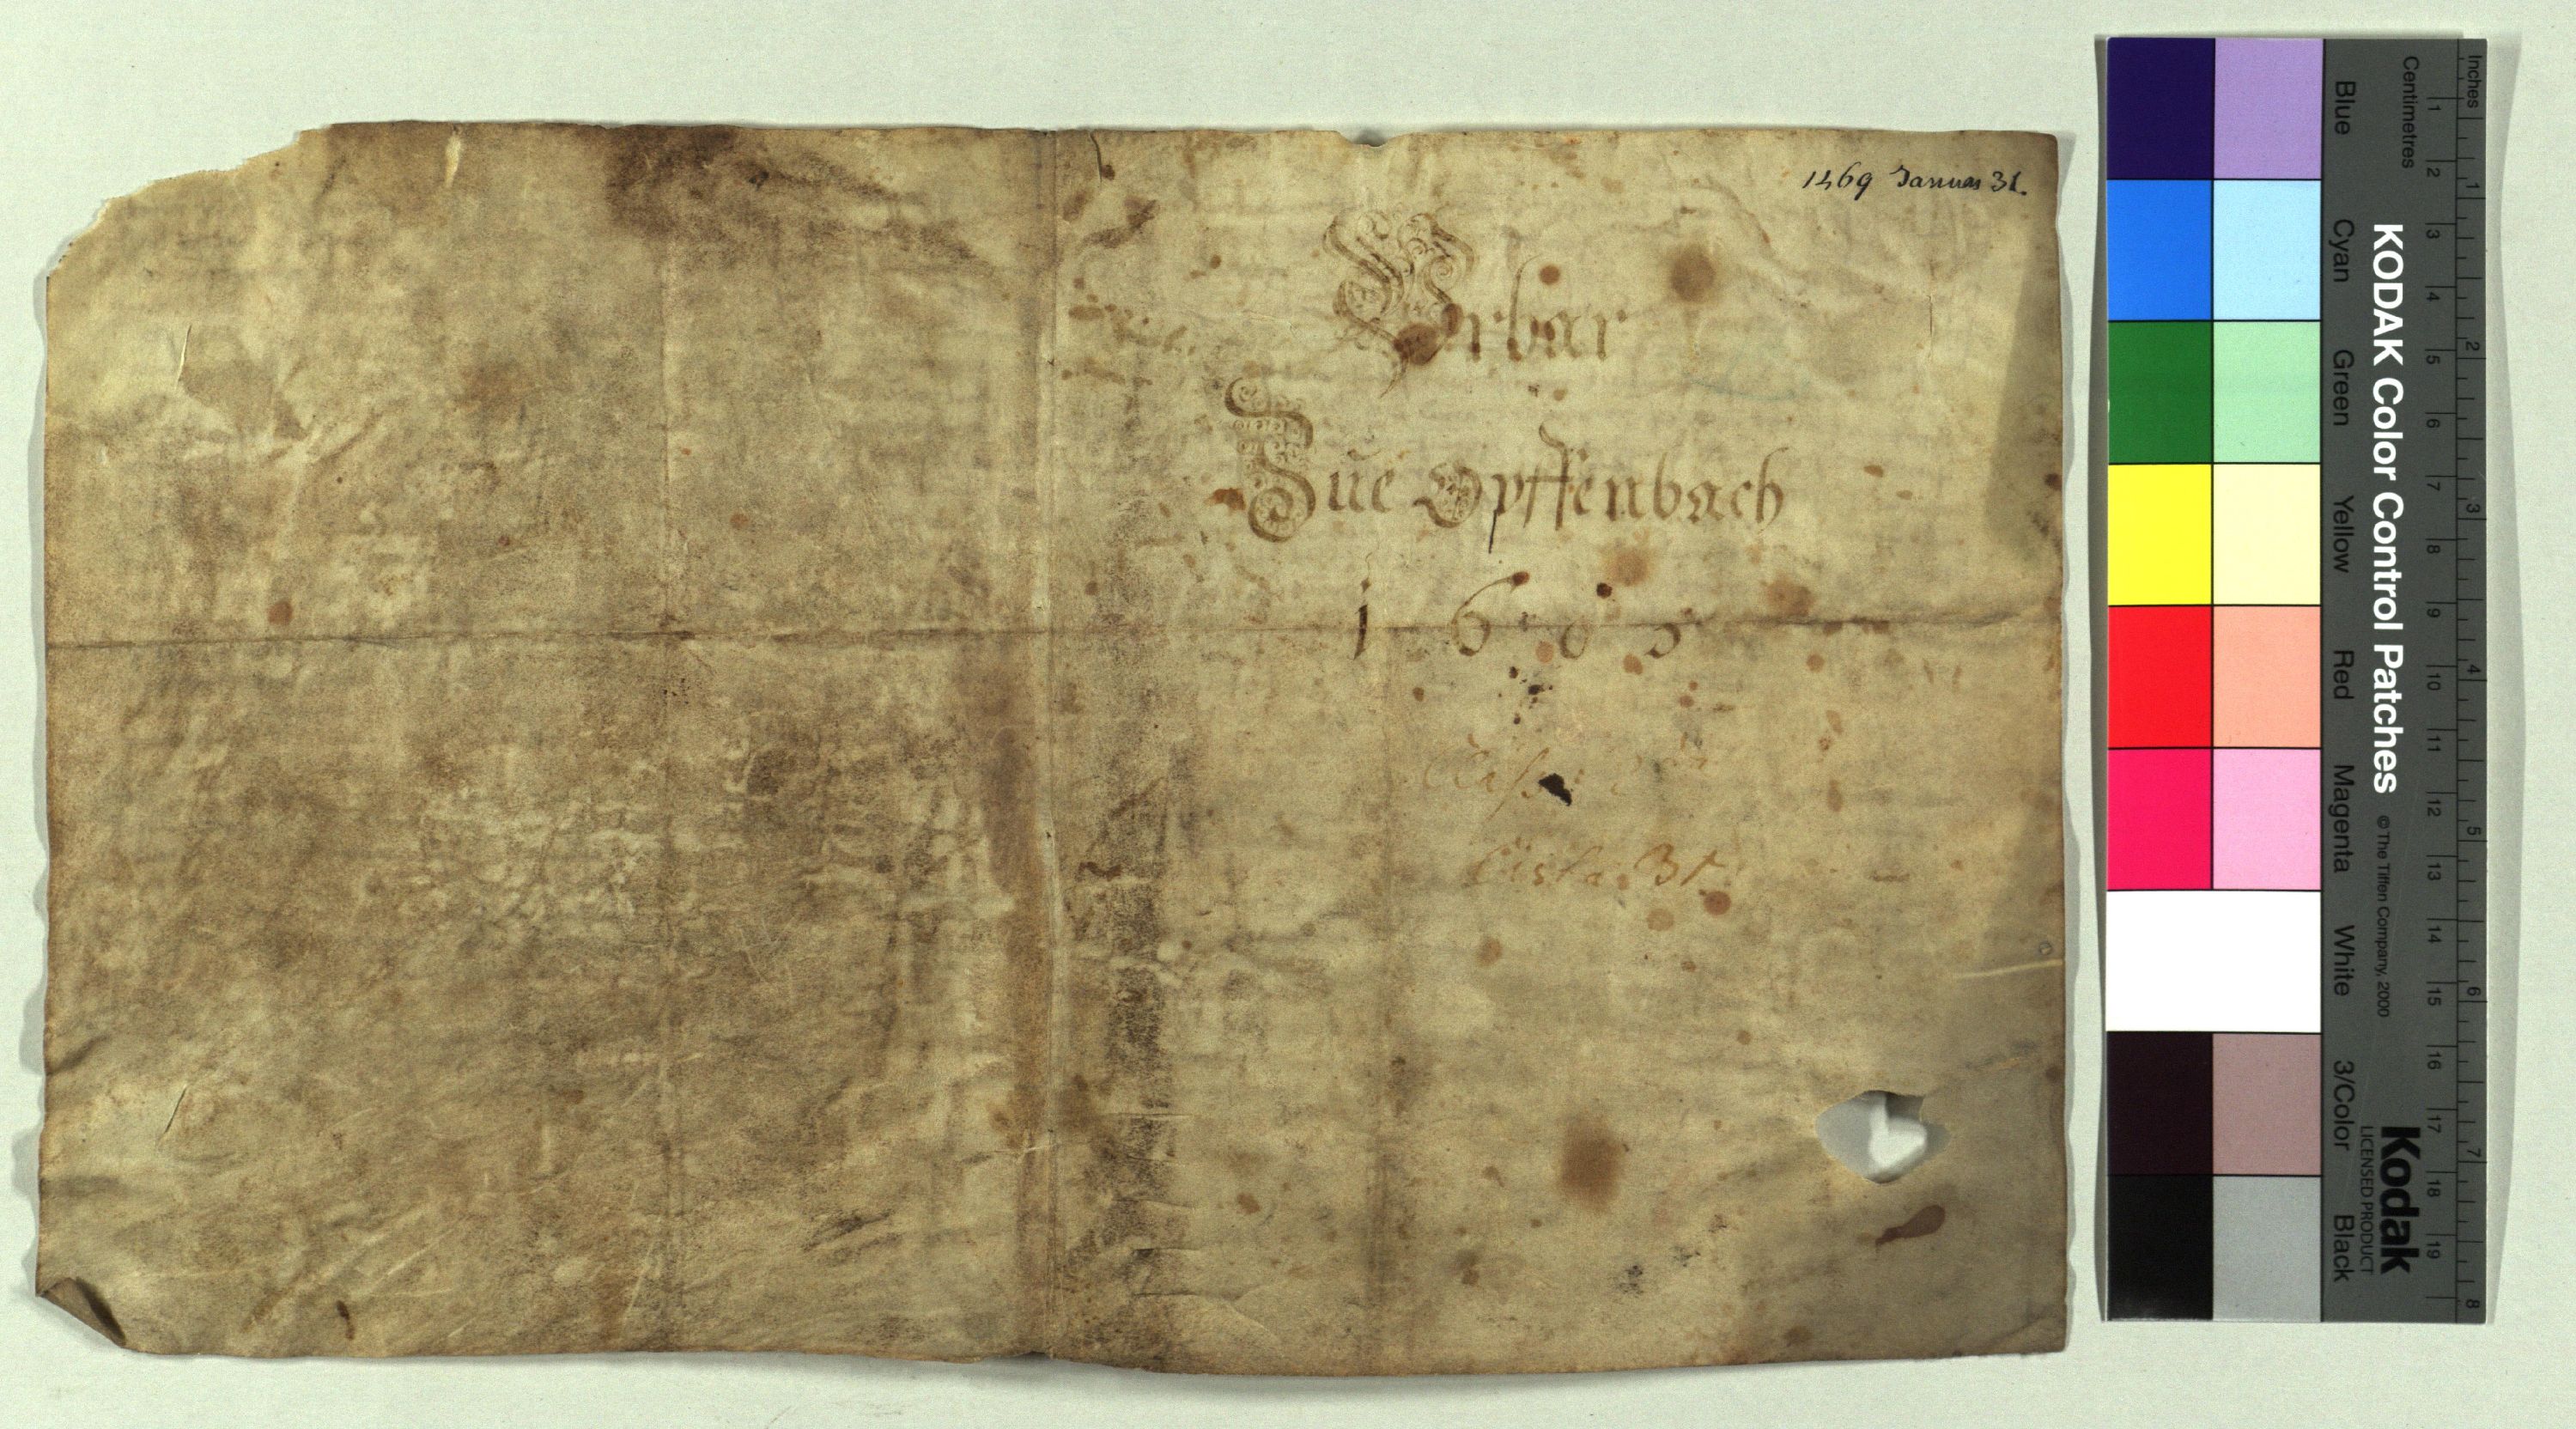 1469 Januar 31.
Vrbar
Zue Opffenbach
1 6 0 5
Cista 31
Inches
Centimetres
1 2 3 4 5 6 7 8
1 2 3 4 5 6 7 8 9 10 11 12 13 14 15 16 17 18 19
KODAK Color Control Patches © The Tiffen Company, 2000
Kodak
LICENSED PRODUCT
Blue Cyan Green Yellow Red Magenta White 3/Color Black